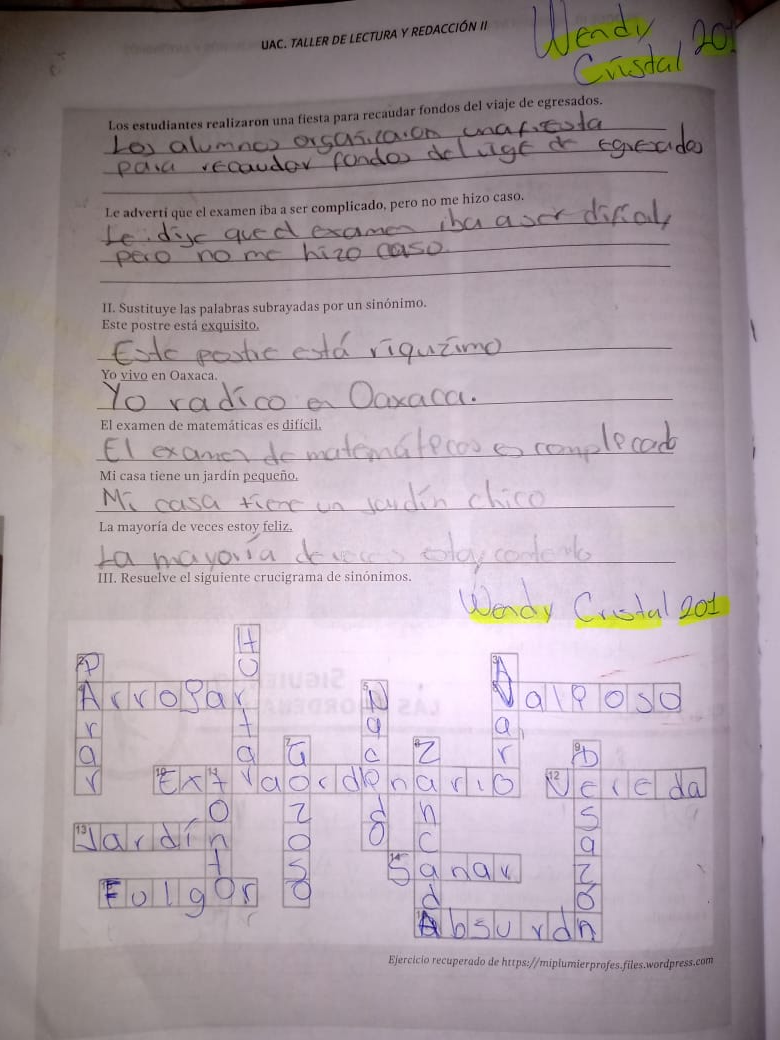 UAC. TALLER DE LECTURA Y REDACCIÓN II
Wendy
Cristal 201
Los estudiantes realizaron una fiesta para recaudar fondos del viaje de egresados.
Los alumnos una fiesta
para recaudar fondos del de egresados
Le advertí que el examen iba a ser complicado, pero no me hizo caso.
Le dije que el examen iba a ser
pero no me hizo caso.
II. Sustituye las palabras subrayadas por un sinónimo.
Este postre está exquisito.
Este postre está riquzimo
Yo vivo en Oaxaca.
Yo radíco en Oaxaca.
El examen de matemáticas es difícil.
El examen de es
Mi casa tiene un jardín pequeño.
Mi casa tiene un jardín chico
La mayoría de veces estoy feliz.
La mayoría de veces estoy contento
III. Resuelve el siguiente crucigrama de sinónimos.
Wendy Cristal 201
Hurtar
Parar
Arrojar
Nacido
Valioso
Gozoso
Zancada
Desazón
Extraordinario
Vereda
Tonto
Jardín
Sanar
Fulgor
Absurdo
Ejercicio recuperado de https://miplumierprofes.files.wordpress.com